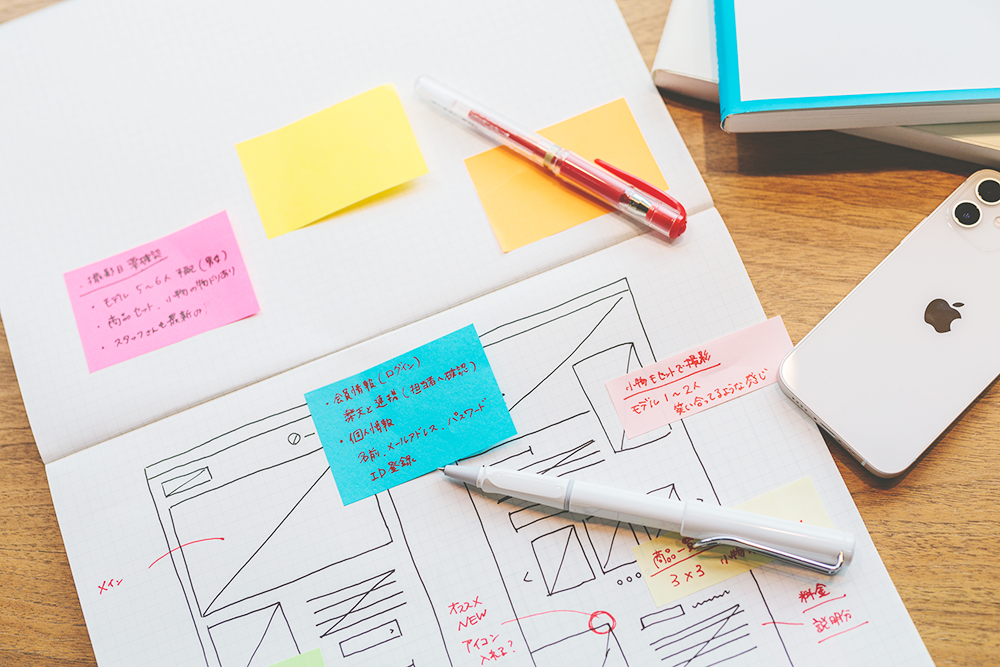 ・撮影日 要確認
・モデル 5〜6人 手配(業者)
・商品セット、小物の物撮りあり
・スタッフさんも最新の
・会員情報(ログイン)
楽天と連携(担当者へ確認)
・個人情報
名前、メールアドレス、パスワード
ID登録
小物もセットで撮影
モデル1〜2人
笑い合ってるような感じ
商品一
小物
3×3
メイン
オススメ
NEW
アイコン
入れる?
料金
説明分